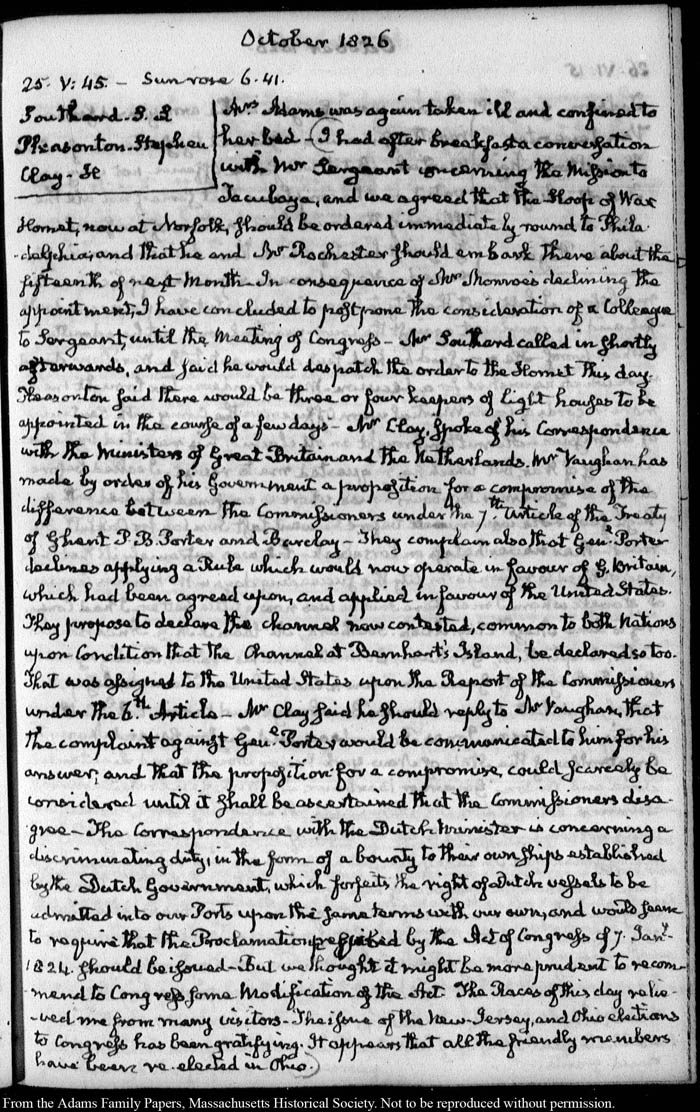 October 1826
25. V:45. — Sun rose 6.41.
Southard. S. L
Pleasonton. Stephen
Clay. H
Mrs Adams was again taken ill and confined to
her bed — I had after breakfast a conversation
with Mr Sergeant concerning the Mission to
Tacubaya, and we agreed that the Sloop of War
Hornet, now at Norfolk, should be ordered immediately round to Phila
-delphia, and that he and Mr Rochester should embark there about the
fifteenth of next Month — In consequence of Mr Monroe's declining the
appointment, I have concluded to postpone the consideration of a Colleague
to Sergeant, until the Meeting of Congress — Mr Southard called in shortly
afterwards, and said he would despatch the order to the Hornet this day.
Pleasonton said there would be three or four keepers of light houses to be
appointed in the course of a few days — Mr Clay, spoke of his Correspondence
with the Ministers of Great Britain and the Netherlands. Mr Vaughan has
made by order of his Government a proposition for a compromise of the
difference between the Commissioners under the 7th Article of the Treaty
of Ghent P. B. Porter and Barclay — They complain also that Genl Porter
declines applying a Rule which would now operate in favour of G. Britain,
which had been agreed upon, and applied in favour of the United States.
They propose to declare the channel now contested, common to both Nations
upon Condition that the Channel at Barnhart's Island, be declared so too.
That was assigned to the United States upon the Report of the Commissioners
under the 6th Article — Mr Clay said he should reply to Mr Vaughan, that
the complaint against Genl Porter would be communicated to him for his
answer, and that the proposition for a compromise, could scarcely be
considered until it shall be ascertained that the Commissioners disa-
gree — The Correspondence with the Dutch Minister is concerning a
discriminating duty, in the form of a bounty to their own ships established
by the Dutch Government, which forfeits the right of Dutch vessels to be
admitted into our Ports upon the same terms with our own, and would seem
to require that the Proclamation prescribed by the Act of Congress of 7. Jany
1824. should be issued — But we thought it might be more prudent to recom-
-mend to Congress some Modification of the Act. The Races of this day relie-
-ved me from many visitors — The issue of the New-Jersey, and Ohio elections
to Congress has been gratifying. It appears that all the friendly members
have been re-elected in Ohio.
From the Adams Family Papers, Massachusetts Historical Society. Not to be reproduced without permission.